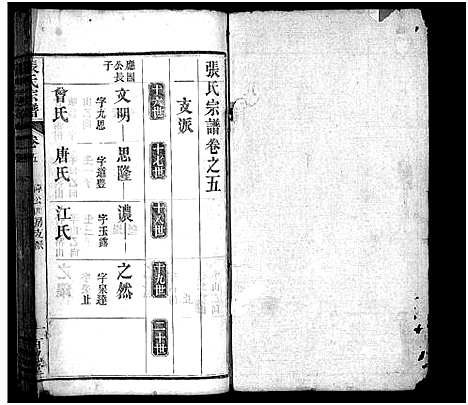 張氏宗譜卷之五
一支派
十六世 十七世 十八世 十九世 二十世
應國公長子
文明 思隆 濃 之然
字九恩 字道豊 字玉露 字泉達 止
曾氏 唐氏 江氏
張氏宗譜 卷五